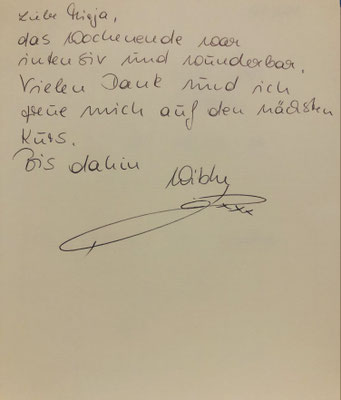 Liebe Mirja,
das Wochenende war
intensiv und wunderbar.
Vielen Dank und ich
freue mich auf den nächsten
Kurs.
Bis dahin
xxx